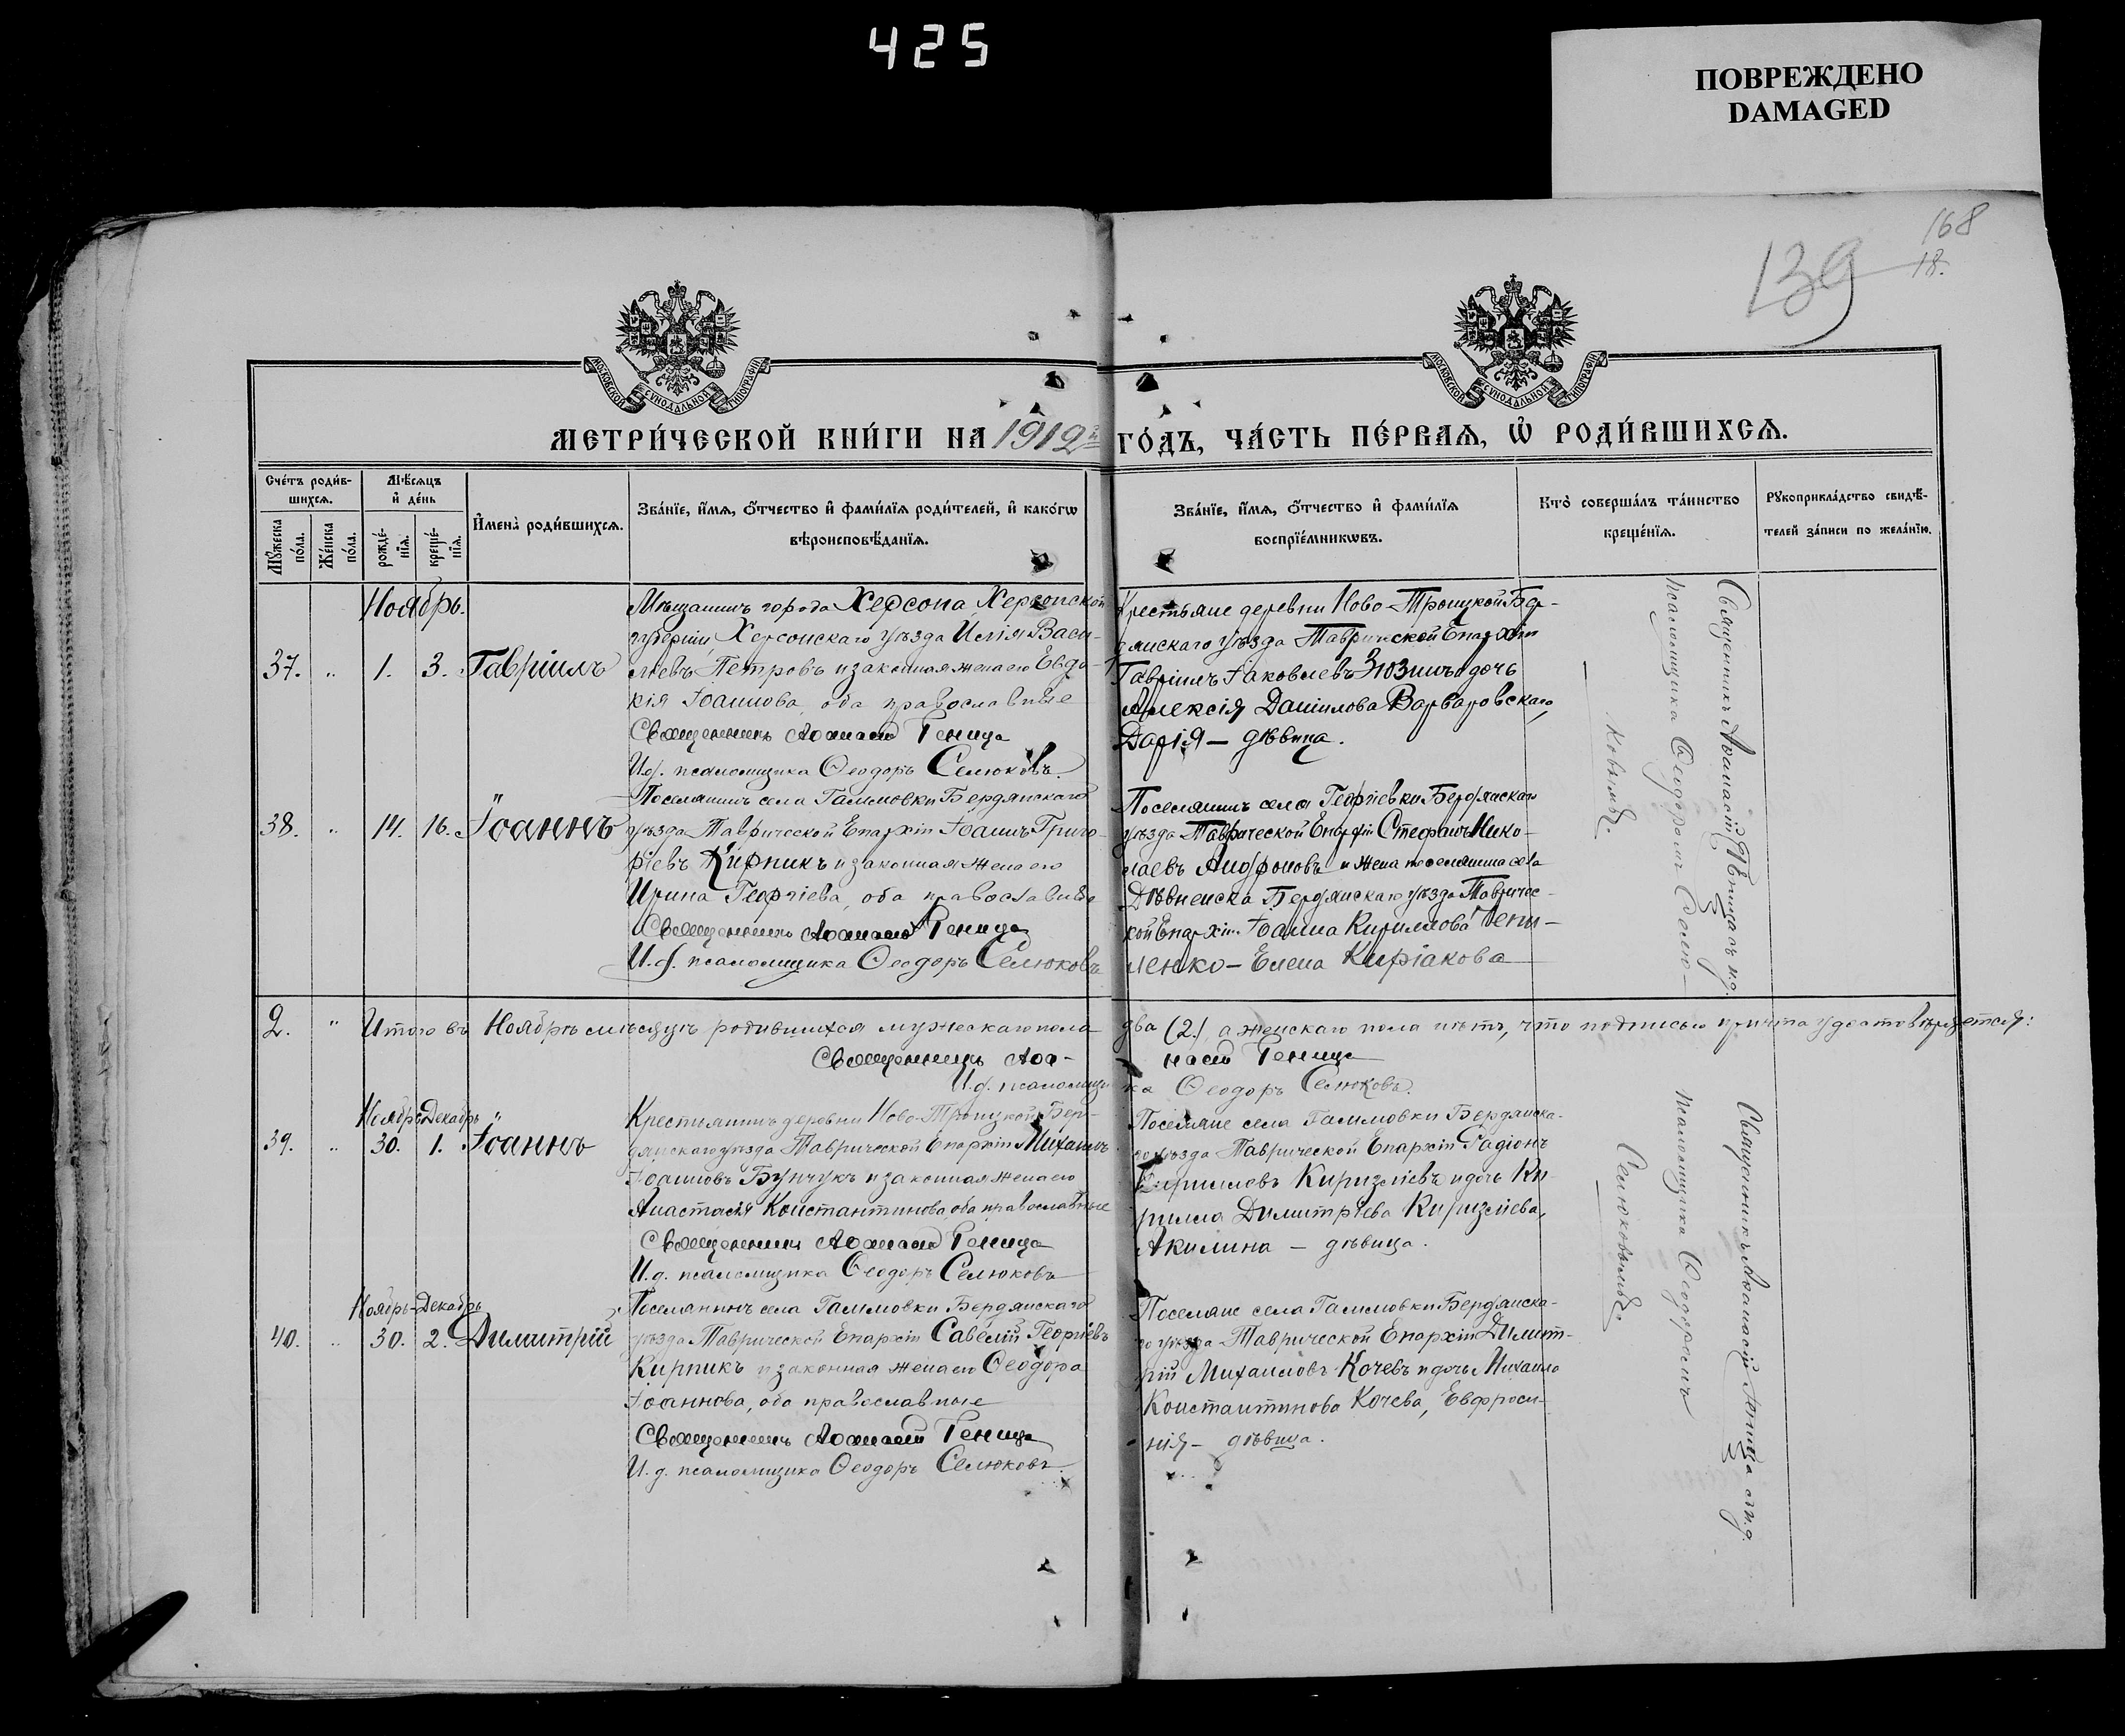 425
ПОВРЕЖДЕНО
DAMAGED
168
139
18.
МОСКОВСКОЙ СѴНОДАЛЬНОЙ ТИПОГРАФІИ
МОСКОВСКОЙ СѴНОДАЛЬНОЙ ТИПОГРАФІИ
МЕТРИ́ЧЕСКОЙ КНИ́ГИ НА 1912й ГО́ДЪ, ЧА́СТЬ ПЕ́РВАѦ, Ѡ РОДИ́ВШИХСѦ.
Сче́тъ роди́в-
шихсѧ.
Мꙋ́жеска
по́ла.
Же́нска
по́ла.
Мѣ́сѧцъ
и де́нь
рожде́-
нїѧ.
креще́-
нїѧ.
Имена̀ роди́вшихсѧ.
Зва́нїе, и́мѧ, ѻ́тчество и фами́лїѧ роди́телей, и како́гѡ
вѣроисповѣ́данїѧ.
Зва́нїе, и́мѧ, ѻ́тчество и фами́лїѧ
воспрїе́мникѡвъ.
Кто̀ соверша́лъ та́инство
креще́нїѧ.
Рꙋкоприкла́дство свидѣ́-
телей за́писи по жела́нїю.
Ноябрь.
37. " 1. 3. Гавріилъ
Мѣщанинъ города Херсона Херсонской
губерніи, Херсонскаго уѣзда Илія Васи-
льевъ Петровъ и законная жена его Евдо-
кія Іоаннова, оба православные
Священникъ Аѳанасій Геница
И.д. псаломщика Ѳеодоръ Селюковъ.
Крестьяне деревни Ново-Троицкой Бер-
дянскаго уѣзда Таврической Епархіи
Гавріилъ Іаковлевъ Зюзинъ и дочь
Алексія Даніилова Варваровскаго,
Дарія — дѣвица.
Священникъ Аѳанасій Геница съ и.д.
псаломщика Ѳеодоромъ Селю-
ковымъ.
38. " 14. 16. Іоаннъ
Поселянинъ села Гаммовки Бердянскаго
уѣзда Таврической Епархіи Іоаннъ Григо-
ріевъ Кирпикъ и законная жена его
Ирина Георгіева, оба православные
Священникъ Аѳанасій Геница
И.д. псаломщика Ѳеодоръ Селюковъ
Поселянинъ села Георгіевки Бердянскаго
уѣзда Таврической Епархіи Стефанъ Нико-
лаевъ Андроновъ и жена поселянина села
Дѣвненска Бердянскаго уѣзда Тавричес-
кой Епархіи Іоанна Кириллова
ленко — Елена Киріакова
2. " Итого въ Ноябрѣ мѣсяцѣ родившихся мужескаго пола два (2.), а женскаго пола нѣтъ, что подписью причта удостовѣряется:
Священникъ Аѳа-насій Геница
И.д. псаломщи-ка Ѳеодоръ Селюковъ.
Ноябрь Декабрь
39. " 30. 1. Іоаннъ
Крестьянинъ деревни Ново-Троицкой Бер-
дянскаго уѣзда Таврической Епархіи Михаилъ
Іоанновъ Бунчукъ и законная жена его
Анастасія Константинова, оба православные
Священникъ Аѳанасій Геница
И.д. псаломщика Ѳеодоръ Селюковъ
Поселяне села Гаммовки Бердянска-
го уѣзда Таврической Епархіи Радіонъ
Кирилловъ Киризліевъ и дочь Ки-
рилла Димитріева Киризліева,
Акилина — дѣвица.
Священникъ Аѳанасій Геница съ и.д.
псаломщика Ѳеодоромъ
Селюковымъ.
Ноябрь-Декабрь
40. " 30. 2. Димитрій
Поселянинъ села Гаммовки Бердянскаго
уѣзда Таврической Епархіи Савелій Георгіевъ
Кирпикъ и законная жена его Ѳеодора
Іоаннова, оба православные
Священникъ Аѳанасій Геница
И.д. псаломщика Ѳеодоръ Селюковъ.
Поселяне села Гаммовки Бердянска-
го уѣзда Таврической Епархіи Димит-
рій Михаиловъ Кочевъ и дочь Михаила
Константинова Кочева, Евфроси-
нія — дѣвица.